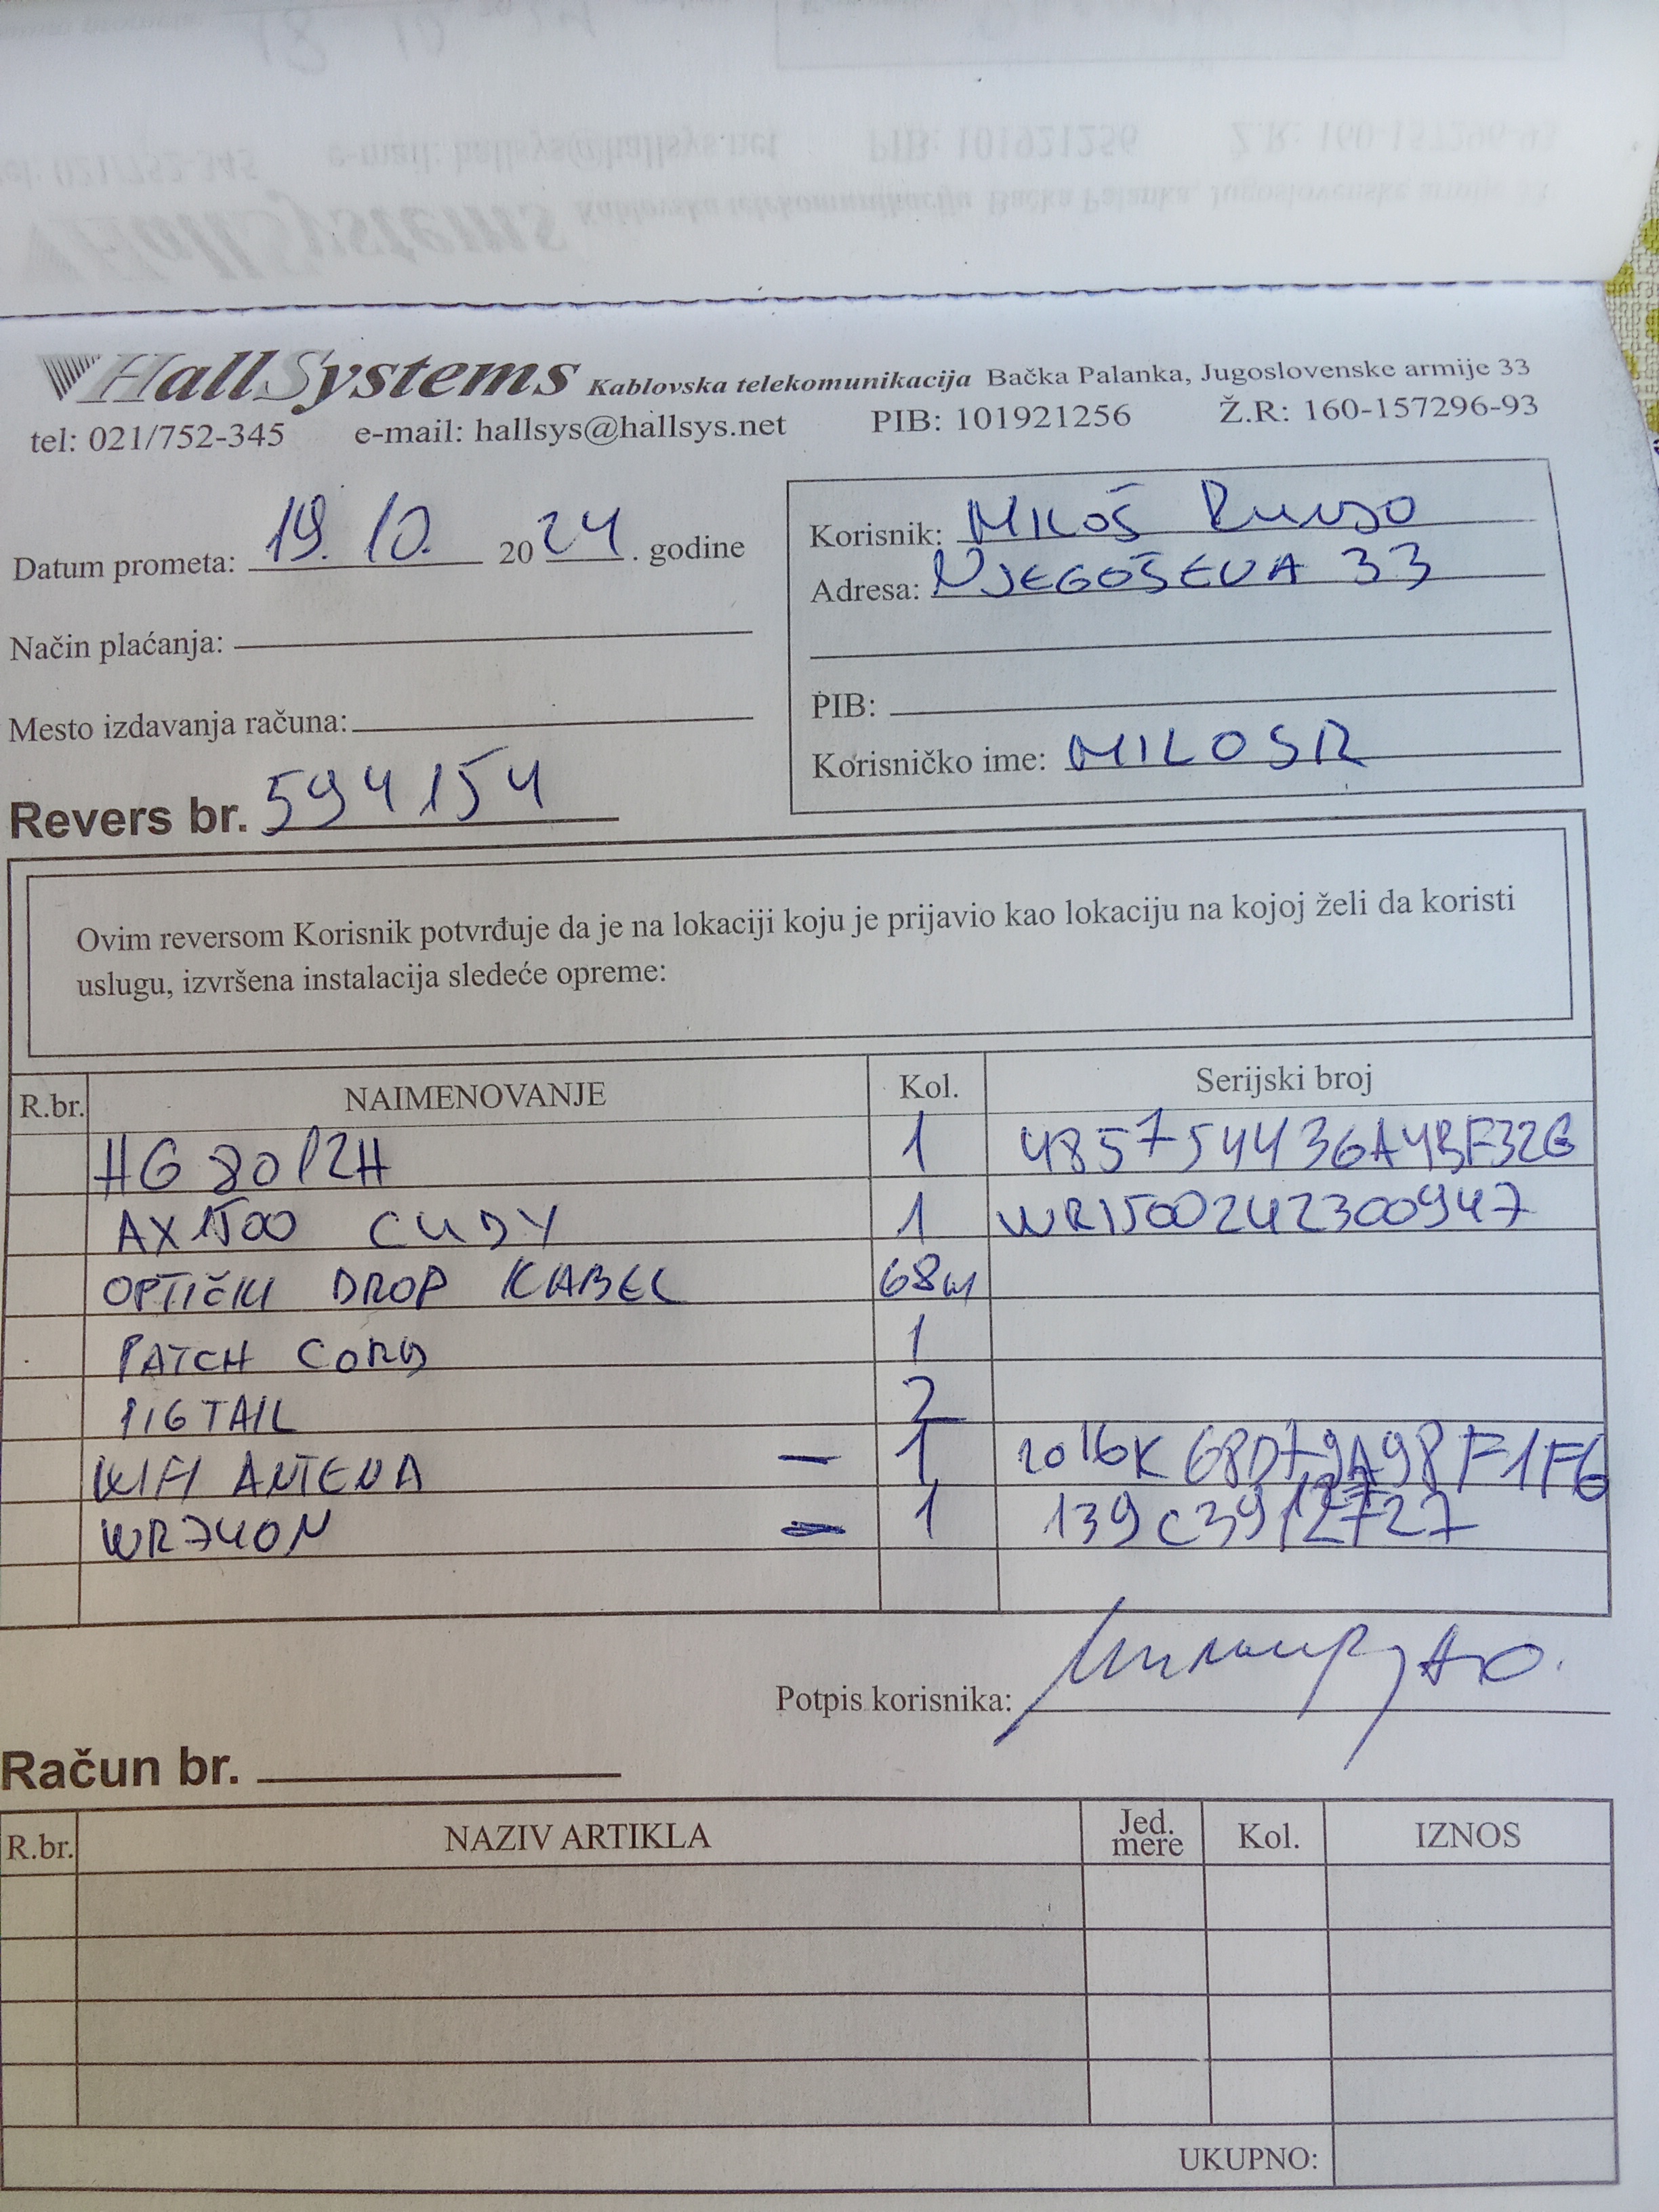 HallSystems Kablovska telekomunikacija Bačka Palanka, Jugoslovenske armije 33
tel: 021/752-345 e-mail: hallsys@hallsys.net PIB: 101921256 Ž.R: 160-157296-93
Datum prometa: 19. 10. 2024. godine
Način plaćanja:
Mesto izdavanja računa:
Revers br. 594154
Korisnik: MILOŠ
Adresa: NJEGOŠEVA 33
PIB:
Korisničko ime: MILOSR
Ovim reversom Korisnik potvrđuje da je na lokaciji koju je prijavio kao lokaciju na kojoj želi da koristi
uslugu, izvršena instalacija sledeće opreme:
R.br. NAIMENOVANJE Kol. Serijski broj
HG8012H 1
AX1500 CUDY 1 WR1500242300947
OPTIČKI DROP KABEL 68m
PATCH CORD 1
PIGTAIL 2
WIFI ANTENA – 1
WR740N – 1 139C3912727
Potpis korisnika:
Račun br.
R.br. NAZIV ARTIKLA Jed. mere Kol. IZNOS
UKUPNO: